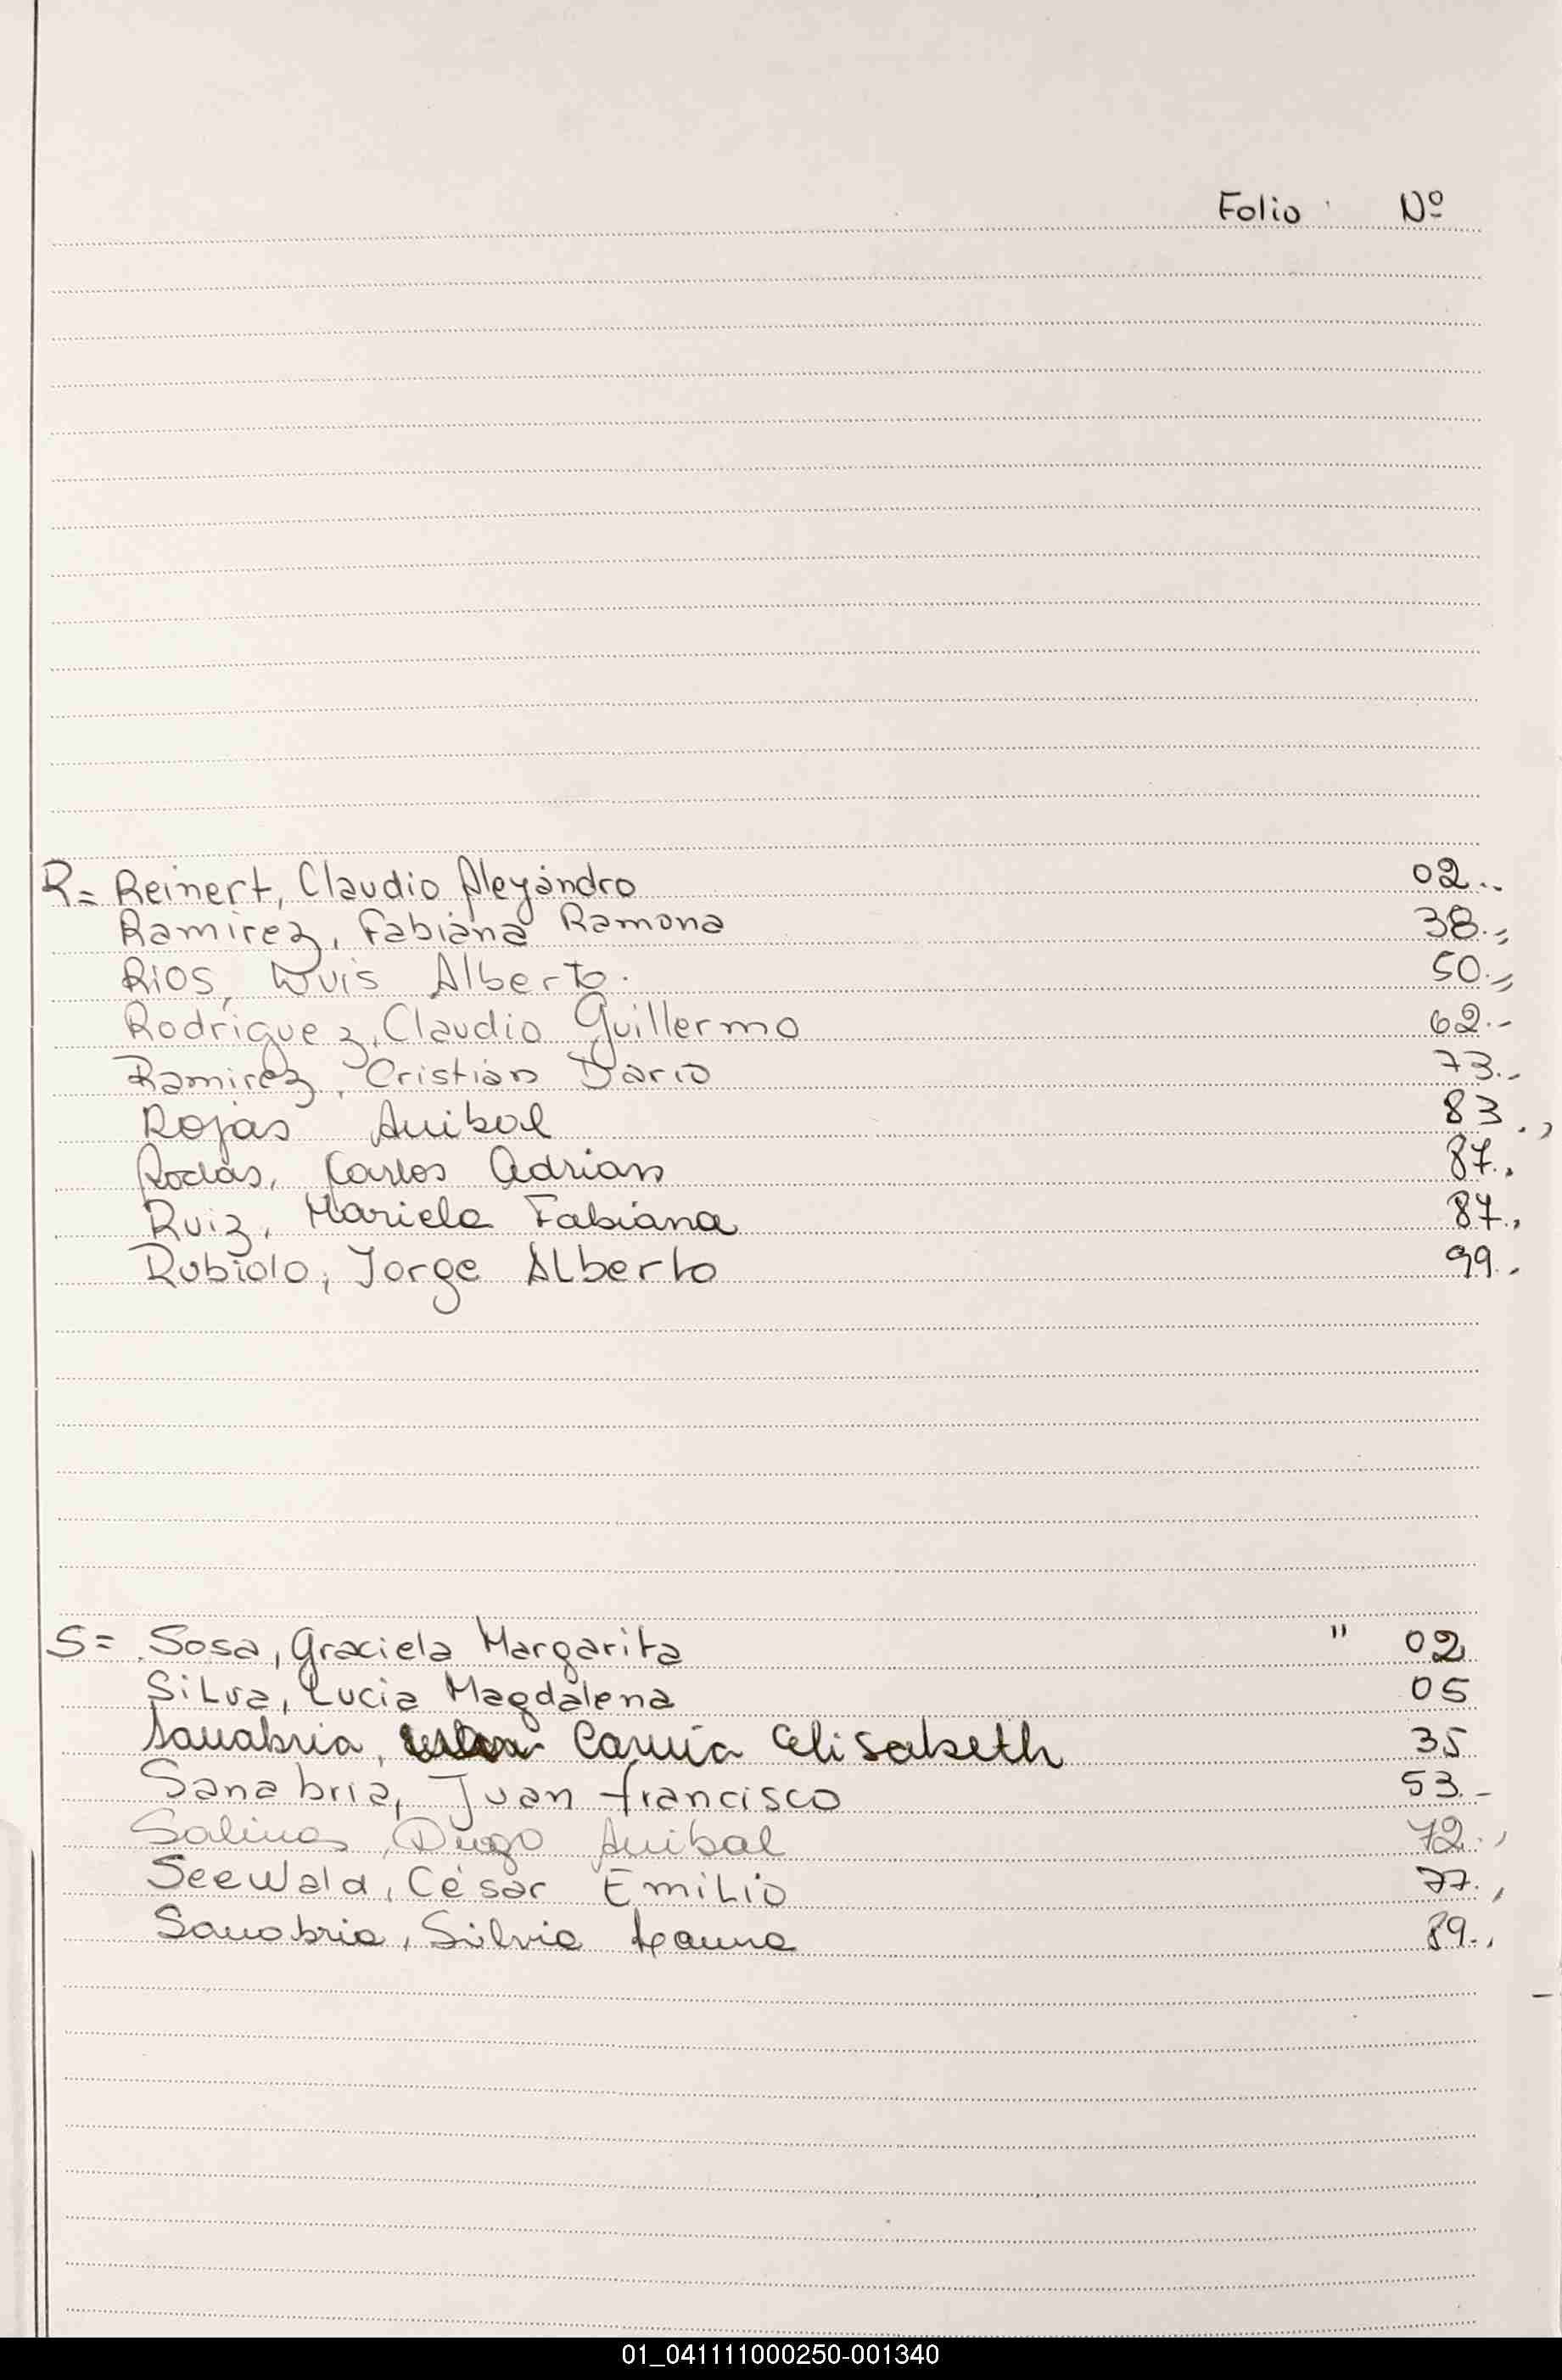 Folio Nº
R= Reinert, Claudio Aleyandro 02..
Ramirez, Fabiana Ramona 38.,
Rios, Luis Alberto. 50.,
Rodriguez, Claudio Guillermo 62.-
Ramirez, Cristian Dario 73.-
Rojas Anibal 83.,
Rodas, Carlos Adrian 87.,
Ruiz, Mariela Fabiana 87.,
Rubiolo, Jorge Alberto 99.-
S= Sosa, Graciela Margarita " 02
Silva, Lucia Magdalena 05
Sanabria, Elisabeth 35
Sanabria, Juan francisco 53.-
Salinas, Diego Anibal 72.,
Seewald, César Emilio 77.,
Sanabria, Silvia 89.,
01_041111000250-001340